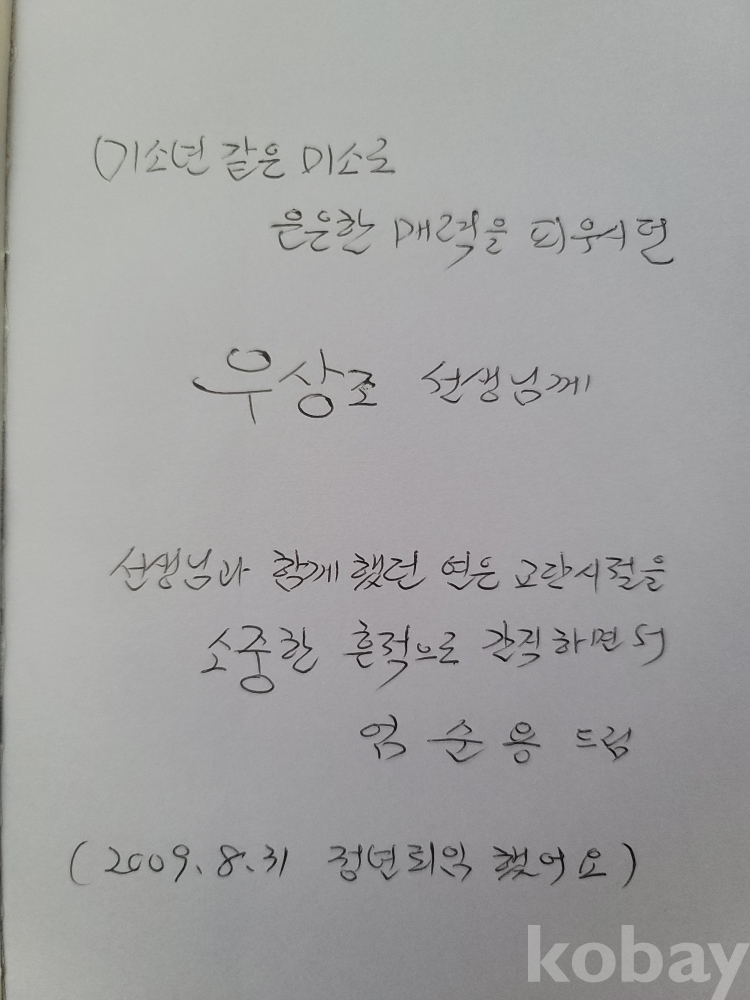 미소년 같은 미소로
은은한 매력을 피우시던
우상조 선생님께
선생님과 함께 했던 연은 교단시절을
소중한 흔적으로 간직하면서
엄순용 드림
(2009.8.31 정년퇴임 했어요)
kobay